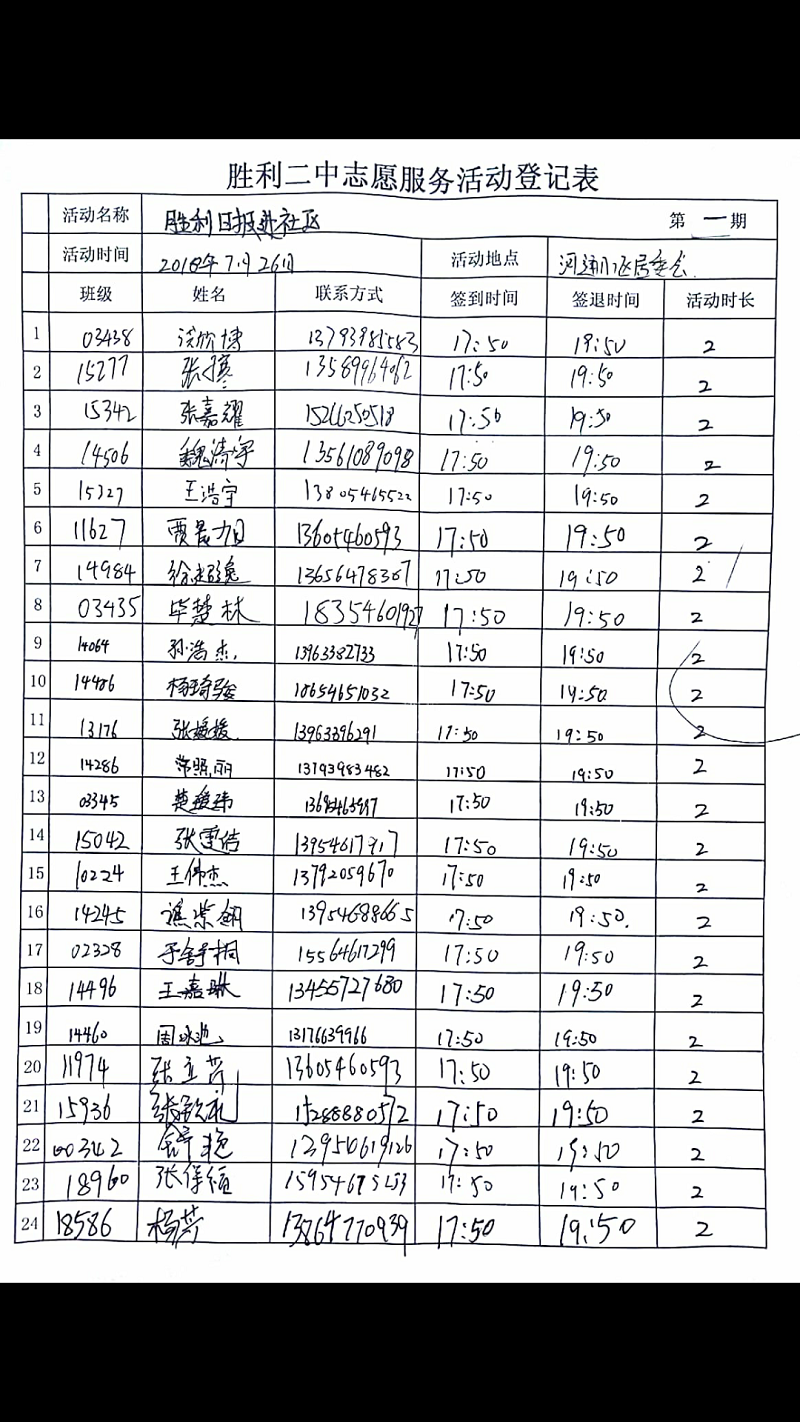 胜利二中志愿服务活动登记表
活动名称 胜利日报社社区 第 一 期
活动时间 2018年7月26日 活动地点 河通 居委会
班级 姓名 联系方式 签到时间 签退时间 活动时长
1 03438 博 13793985583 17:50 19:50 2
2 15277 张 13589964062 17:50 19:50 2
3 15342 张嘉耀 15266250518 17:50 19:50 2
4 14506 魏涛宇 13561089098 17:50 19:50 2
5 15327 王浩宇 13805465522 17:50 19:50 2
6 11627 贾晨旭 13605460593 17:50 19:50 2
7 14984 徐超逸 13656478307 17:50 19:50 2
8 03435 毕楚林 18354601927 17:50 19:50 2
9 14064 孙浩杰 13963382733 17:50 19:50 2
10 14486 杨琦骏 18654651032 17:50 19:50 2
11 13176 张媛媛 13963396291 17:50 19:50 2
12 14286 常熙丽 13793983482 17:50 19:50 2
13 03345 17:50 19:50 2
14 15042 张雯洁 13954617917 17:50 19:50 2
15 10224 王伟杰 13792059670 17:50 19:50 2
16 14245 谯紫钢 13954688665 17:50 19:50. 2
17 02328 于舒桐 15564617299 17:50 19:50 2
18 14496 王嘉琳 13455727680 17:50 19:50 2
19 14460 周 13176639966 17:50 19:50 2
20 11974 张立芳 13605460593 17:50 19:50 2
21 15936 张敬礼 15288880572 17:50 19:50 2
22 00342 舒艳 13950619126 17:50 19:50 2
23 18960 张保福 17:50 19:50 2
24 18586 杨芳 13864770939 17:50 19:50 2